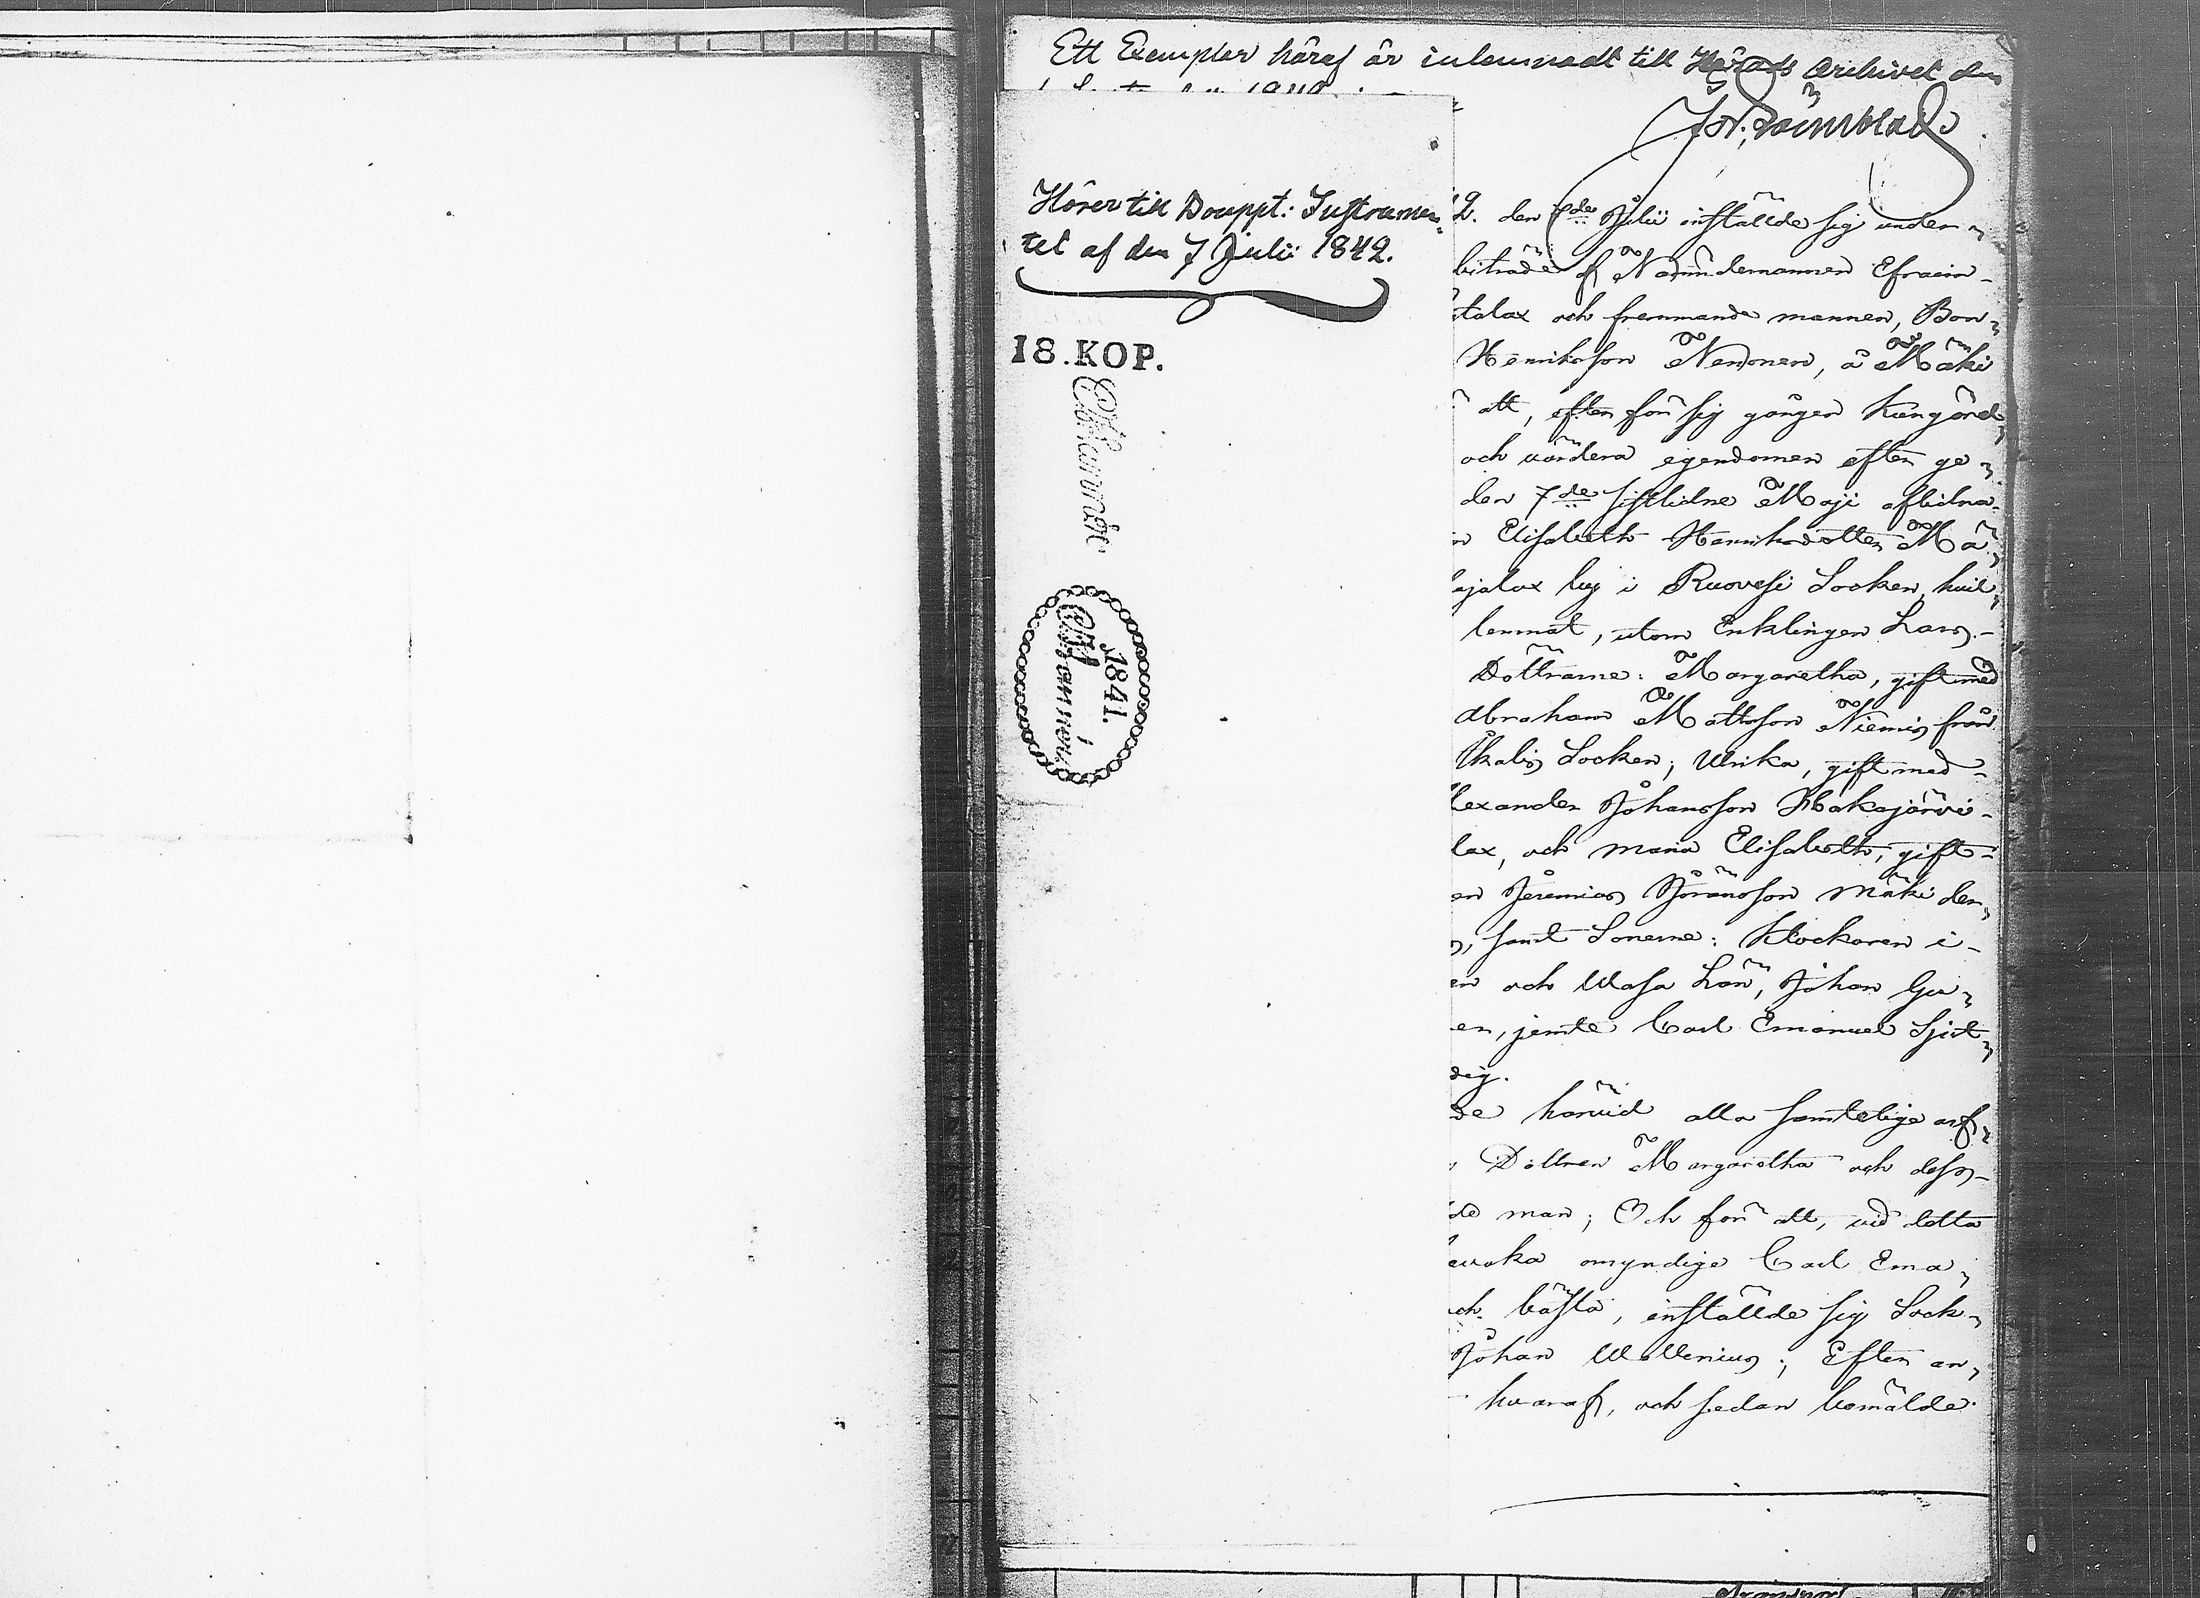 Ett Exemplar häraf är inlemnadt till Härads Archivet den
Hörer till Bouppt: Instrumen-
tet af den 7 Julii 1842.
18. KOP.
1841.
2. den 7de Julii inställde sig under
biträde af Nämndemannen Efraim
talax och fremmande mannen, Bon-
Henriksson Nenonen, å Mäki
att, efter för sig gången kungörel-
och värdera egendomen efter ge-
den 7de sistlidne Maji aflidna
n Elisabeth Henriksdotter Mä-
ajalax by i Ruovesi Socken, hvil-
lemnat, utom Enklingen Lars
Döttrarne: Margaretha, gift med
Abraham Mattsson Niemis från
Ikalis Socken; Ulrika, gift med
lexander Johansson Hakojärvi
lax, och Maria Elisabeth, gift
en Jeremias Göransson Mäki der-
s, samt Sönerne: Klockaren i
en och Wasa Län, Johan Gu-
en, jemte Carl Emanuel Sjist-
dig.
de härvid alla samtelige arf-
Dottren Margaretha och dess
de man; Och för att, vid detta
evaka omyndige Carl Ema-
ch bästa, inställde sig Sock-
Johan Wallenius; Efter an-
hvaraf, och sedan bemälde